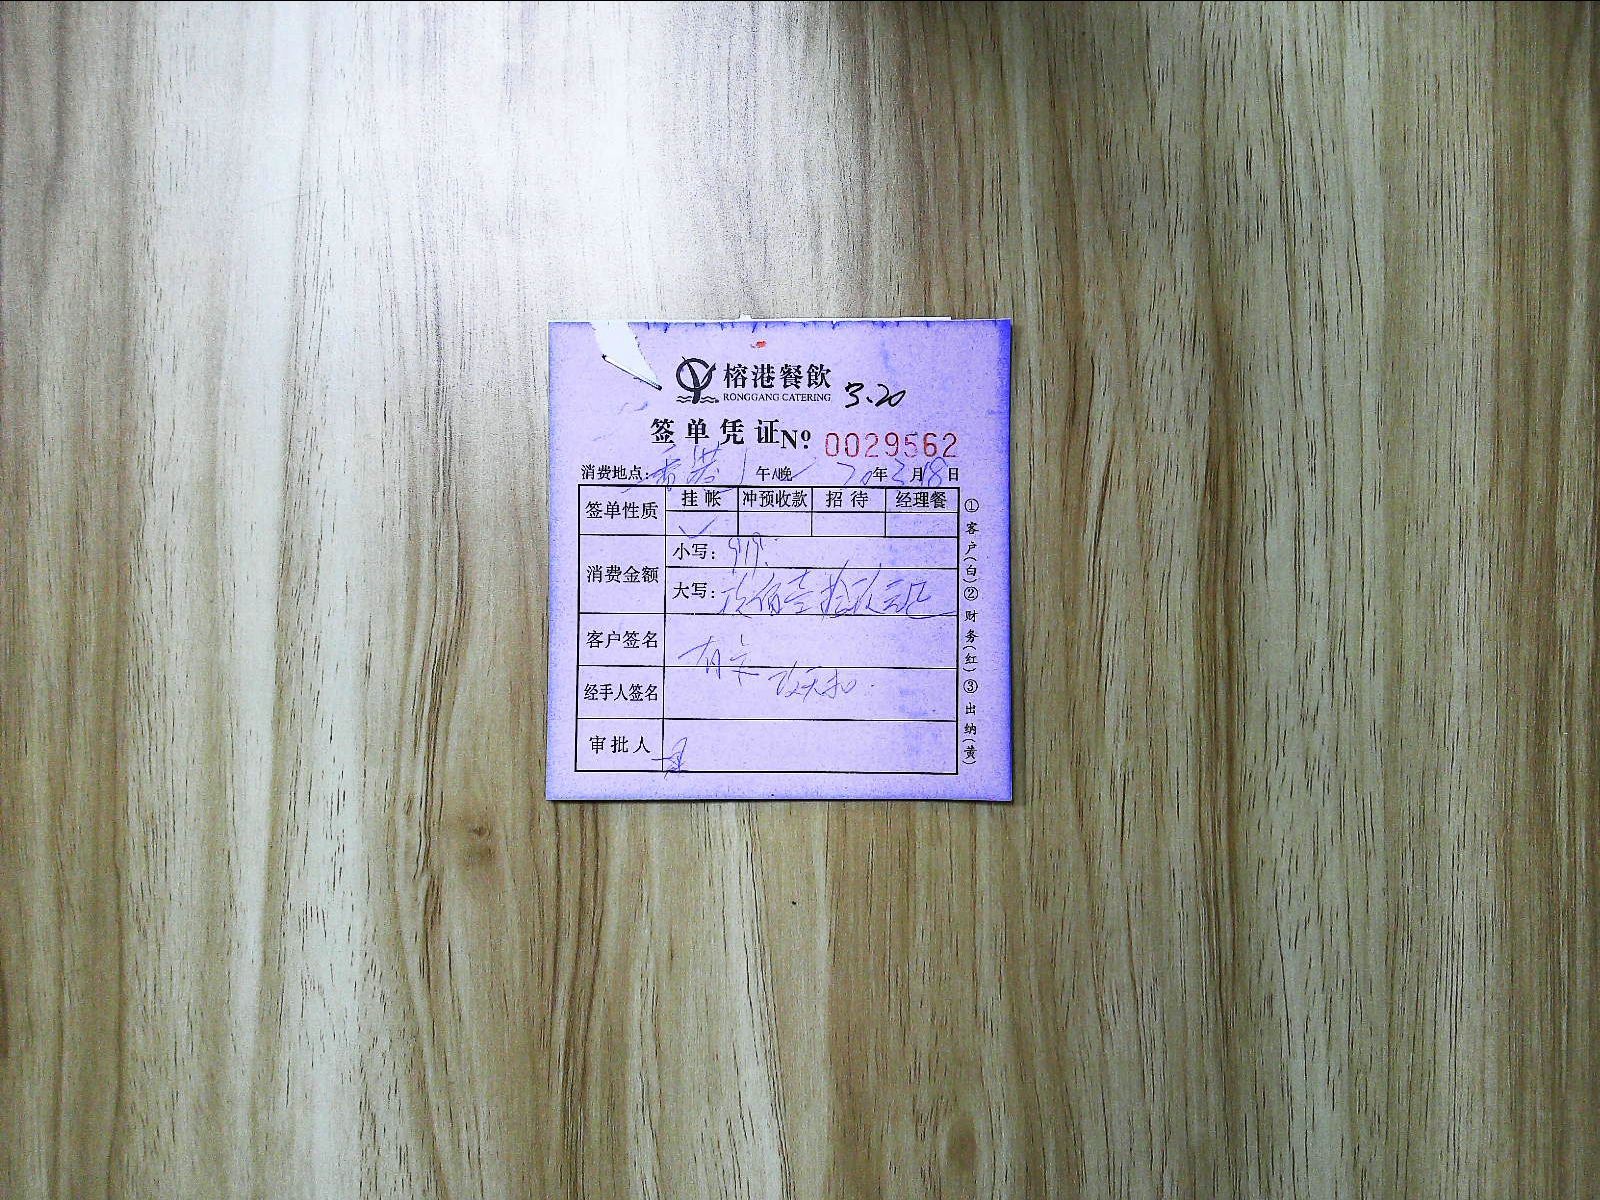 榕港餐飲
RONGGANG CATERING
3.20
签单凭证 Nº 0029562
消费地点: 香港 午/晚 20年3月18日
签单性质 挂帐 冲预收款 招待 经理餐
✓
消费金额 小写: 919.
大写: 玖佰壹拾玖元正
客户签名
经手人签名
审批人
①客户(白)②财务(红)③出纳(黄)